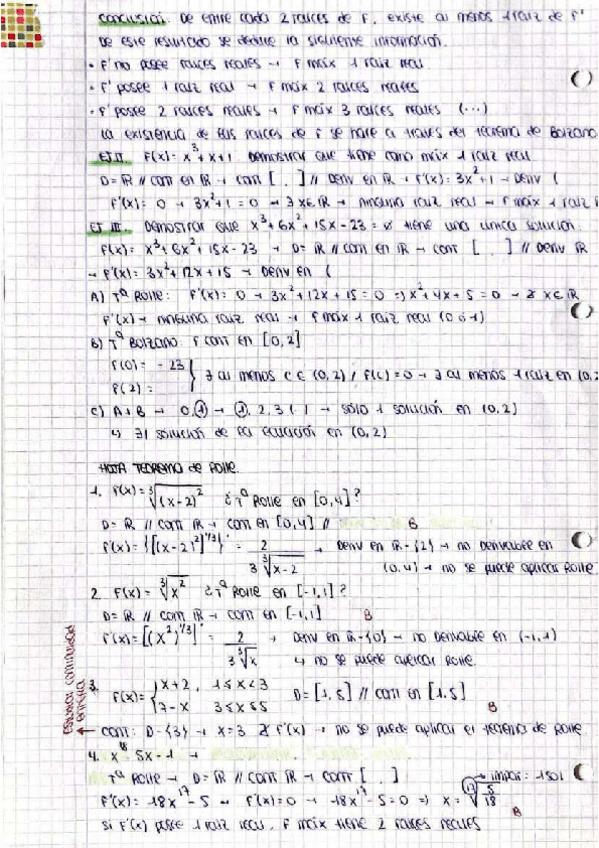 Conclusión: De entre cada 2 raíces de F, existe al menos 1 raíz de F'
De este resultado se deduce la siguiente información.
• F' no posee raíces reales → F máx 1 raíz real
• F' posee 1 raíz real → F máx 2 raíces reales
• F' posee 2 raíces reales → F máx 3 raíces reales (...)
La existencia de las raíces de F se hace a través del teorema de Bolzano.
EJ II. F(x) = x³+x+1 Demostrar que tiene como máx 1 raíz real
D = ℝ // cont en ℝ → cont [ , ] // Deriv en ℝ → F'(x) = 3x²+1 → Deriv (
F'(x) = 0 → 3x²+1 = 0 → ∄ x∈ℝ → ninguna raíz real → F máx 1 raíz
EJ III. Demostrar que x³+6x²+15x-23 = 0 tiene una única solución.
F(x) = x³+6x²+15x-23 → D = ℝ // cont en ℝ → cont [ , ] // Deriv ℝ
→ F'(x) = 3x²+12x+15 → Deriv en (
A) Tª Rolle: F'(x) = 0 → 3x²+12x+15 = 0 ⇒ x²+4x+5 = 0 → ∄ x∈ℝ
F'(x) → ninguna raíz real → F máx 1 raíz real (0 ó 1)
B) Tª Bolzano: F cont en [0,2]
F(0) = -23
F(2) = } ∃ al menos c ∈ (0,2) / F(c) = 0 → ∃ al menos 1 raíz en (0,
C) A+B → 0, ① → ①, 2, 3 (...) → sólo 1 solución en (0,2)
↳ ∃1 solución de la ecuación en (0,2)
HOJA TEOREMA de Rolle.
1. F(x) = ∛(x-2)² ¿Tª Rolle en [0,4]?
D = ℝ // cont ℝ → cont en [0,4] // B
F'(x) = {[(x-2)²]^1/3}' = 2 / 3∛x-2 → Deriv en ℝ-{2} → no derivable en
(0,4) → no se puede aplicar Rolle
2. F(x) = ∛x² ¿Tª Rolle en [-1,1]?
D = ℝ // cont ℝ → cont en [-1,1] B
F'(x) = [(x²)^1/3]' = 2 / 3∛x → Deriv en ℝ-{0} → no derivable en (-1,1)
↳ no se puede aplicar Rolle.
3. F(x) = { x+2, 1≤x<3
7-x 3≤x≤5 D = [1,5] // cont en [1,5] B
← cont: D-{3} → x=3 ∄ F'(x) → no se puede aplicar el teorema de Rolle.
4. x¹⁸ 5x-1 →
Tª Rolle → D = ℝ // cont ℝ → cont [ , ]
→ impar: 1 sol
F'(x) = 18x¹⁷-5 → F'(x) = 0 → 18x¹⁷-5 = 0 ⇒ x = ¹⁷√5/18 B
si F'(x) posee 1 raíz real, F máx tiene 2 raíces reales